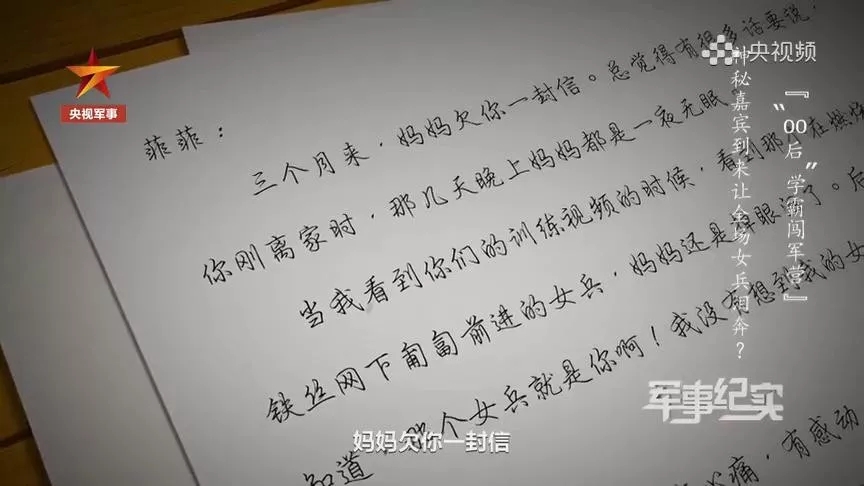 央视军事
央视频
『"00后"学霸闯军营』
神秘嘉宾到来让全场女兵泪奔？
菲菲：
三个月来，妈妈欠你一封信。总觉得有很多话要说，
你刚离家时，那几天晚上妈妈都是一夜无眠
当我看到你们的训练视频的时候，看到那个在燃烧
铁丝网下匍匐前进的女兵，妈妈还是掉眼泪了。后
知道，那个女兵就是你啊！我没有想到我的女
心痛，有感动
军事纪实
妈妈欠你一封信